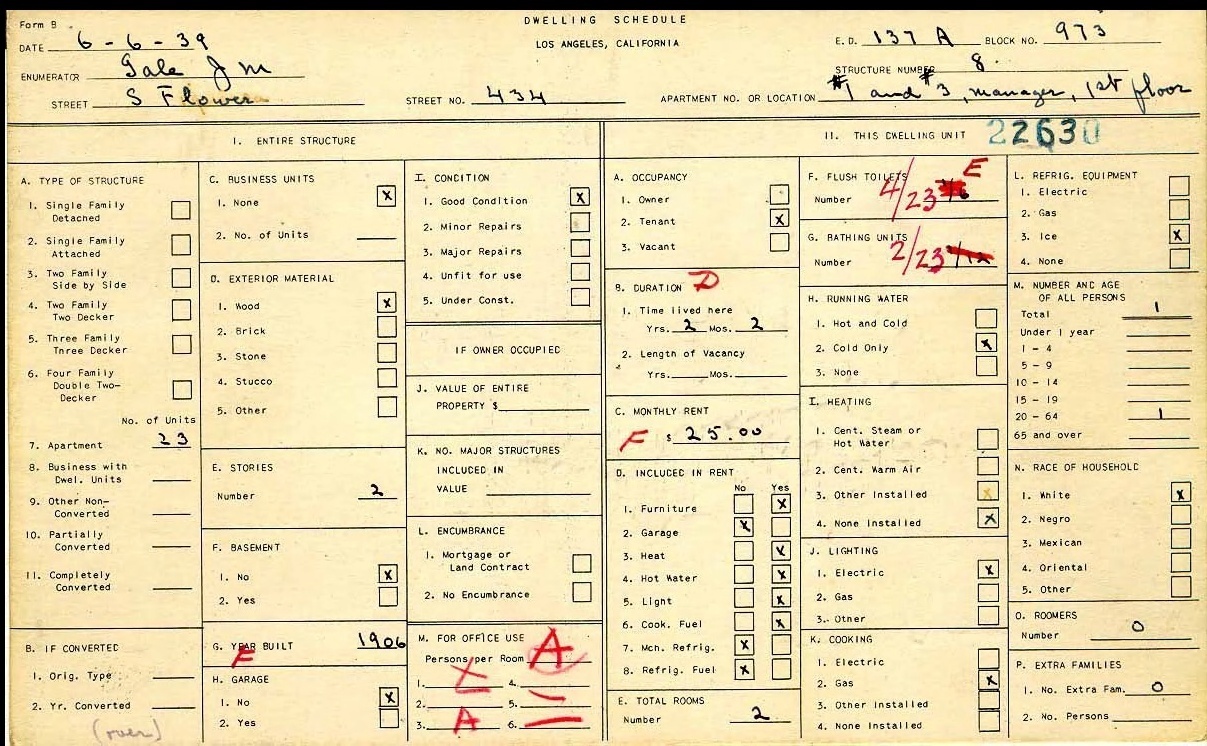 Form B
DWELLING SCHEDULE
LOS ANGELES, CALIFORNIA
DATE 6-6-39
E.D. 137 A BLOCK NO. 973
ENUMERATOR Gale J M
STRUCTURE NUMBER 8
STREET S Flower
STREET NO. 434
APARTMENT NO. OR LOCATION #1 and #3, manager, 1st floor
I. ENTIRE STRUCTURE
A. TYPE OF STRUCTURE
1. Single Family Detached
2. Single Family Attached
3. Two Family Side by Side
4. Two Family Two Decker
5. Three Family Three Decker
6. Four Family Double Two-Decker
No. of Units
7. Apartment 23
8. Business with Dwel. Units
9. Other Non-Converted
10. Partially Converted
11. Completely Converted
B. IF CONVERTED
1. Orig. Type
2. Yr. Converted
(over)
C. BUSINESS UNITS
1. None X
2. No. of Units
D. EXTERIOR MATERIAL
1. Wood X
2. Brick
3. Stone
4. Stucco
5. Other
E. STORIES
Number 2
F. BASEMENT
1. No X
2. Yes
G. YEAR BUILT 1906
F
H. GARAGE
1. No X
2. Yes
I. CONDITION
1. Good Condition X
2. Minor Repairs
3. Major Repairs
4. Unfit for use
5. Under Const.
IF OWNER OCCUPIED
J. VALUE OF ENTIRE
PROPERTY $
K. NO. MAJOR STRUCTURES
INCLUDED IN
VALUE
L. ENCUMBRANCE
1. Mortgage or Land Contract
2. No Encumbrance
M. FOR OFFICE USE
Persons per Room A
1. X 4. —
2. 5. —
3. A 6. —
II. THIS DWELLING UNIT 22630
A. OCCUPANCY
1. Owner
2. Tenant X
3. Vacant
B. DURATION D
1. Time lived here
Yrs. 2 Mos. 2
2. Length of Vacancy
Yrs. Mos.
C. MONTHLY RENT
F $ 25.00
D. INCLUDED IN RENT
No Yes
1. Furniture X
2. Garage X
3. Heat X
4. Hot Water X
5. Light X
6. Cook. Fuel X
7. Mch. Refrig. X
8. Refrig. Fuel X
E. TOTAL ROOMS
Number 2
F. FLUSH TOILETS E
Number 4/23
G. BATHING UNITS
Number 2/23
H. RUNNING WATER
1. Hot and Cold
2. Cold Only X
3. None
I. HEATING
1. Cent. Steam or Hot Water
2. Cent. Warm Air
3. Other Installed
4. None Installed X
J. LIGHTING
1. Electric X
2. Gas
3. Other
K. COOKING
1. Electric
2. Gas X
3. Other Installed
4. None Installed
L. REFRIG. EQUIPMENT
1. Electric
2. Gas
3. Ice X
4. None
M. NUMBER AND AGE
OF ALL PERSONS
Total 1
Under 1 year
1 - 4
5 - 9
10 - 14
15 - 19
20 - 64 1
65 and over
N. RACE OF HOUSEHOLD
1. White X
2. Negro
3. Mexican
4. Oriental
5. Other
O. ROOMERS
Number 0
P. EXTRA FAMILIES
1. No. Extra Fam. 0
2. No. Persons